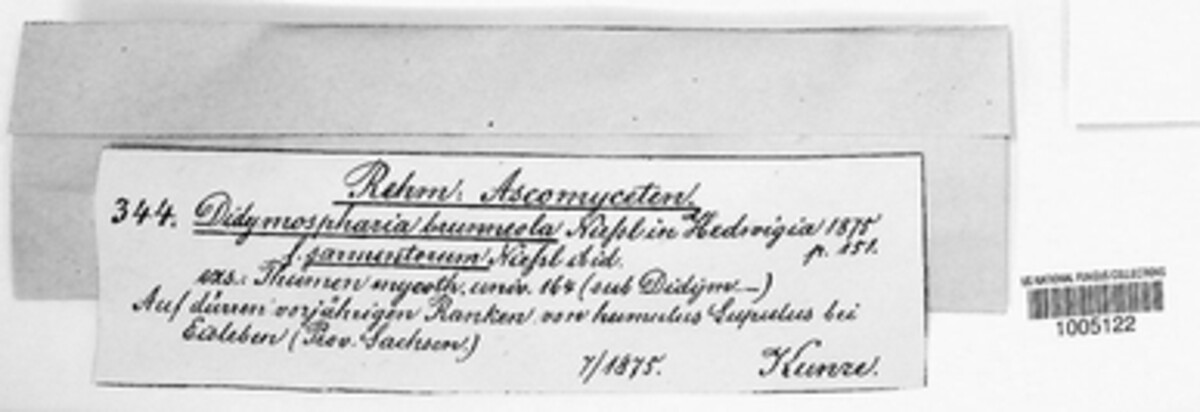 Rehm: Ascomyceten.
344. Didymospharia brunneola Niessl in Hedwigia 1875
p. 151.
f. sarmentorum Niessl ibid.
exs.: Thümen mycoth. univ. 164 (sub Didym—)
Auf dürren vorjährigen Ranken von humulus Lupulus bei
Eisleben (Prov. Sachsen.)
7/1875. Kunze.
US NATIONAL FUNGUS COLLECTIONS
1005122